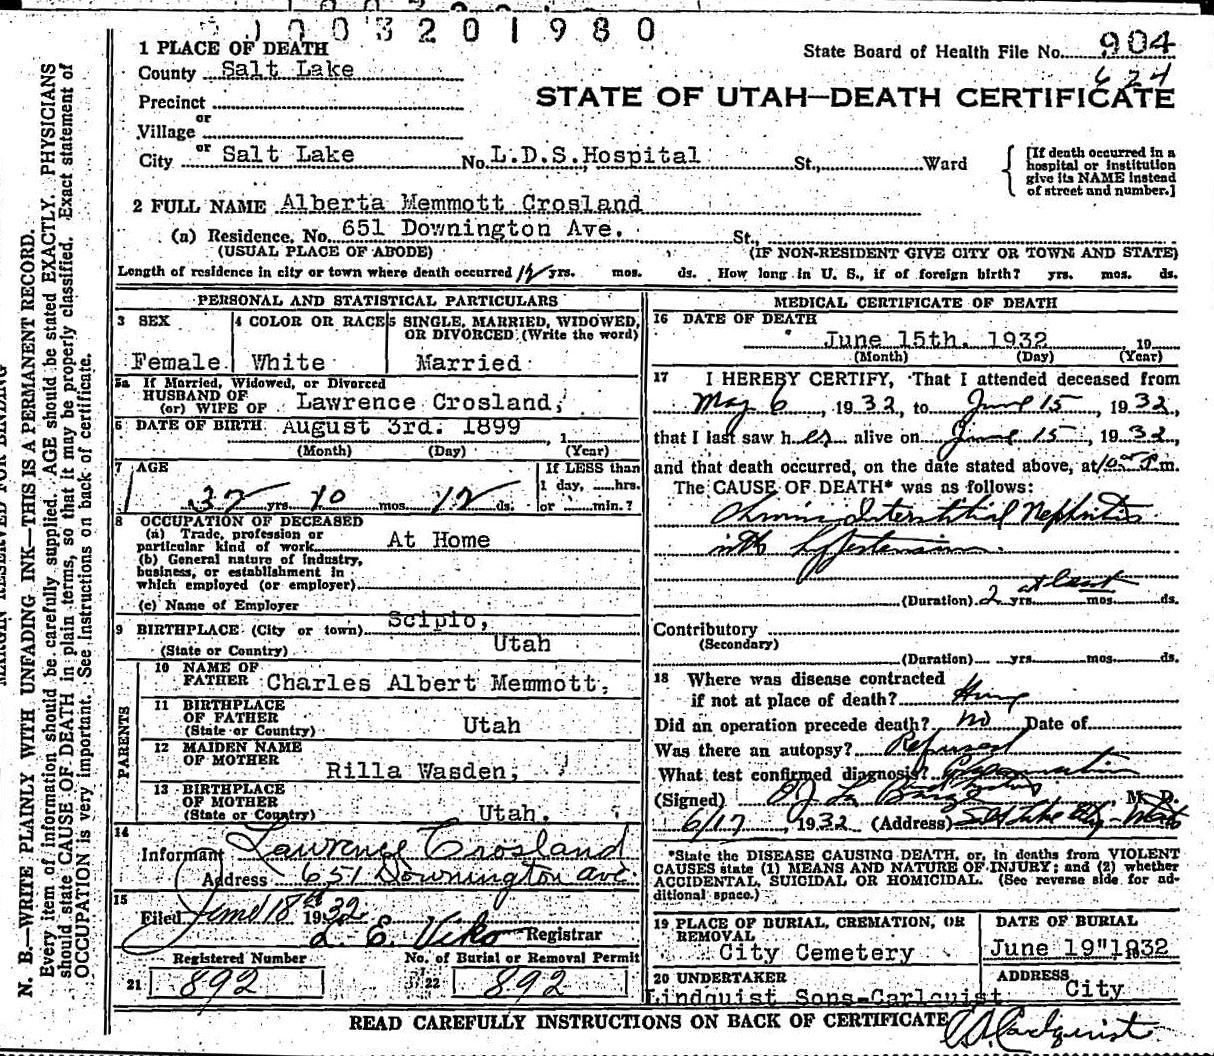 1003201980
1 PLACE OF DEATH
State Board of Health File No. 904
County Salt Lake
624
Precinct
STATE OF UTAH—DEATH CERTIFICATE
or
Village
or
City Salt Lake No. L.D.S.Hospital St., Ward
[If death occurred in a hospital or institution give its NAME instead of street and number.]
2 FULL NAME Alberta Memmott Crosland
(a) Residence. No. 651 Downington Ave. St.,
(USUAL PLACE OF ABODE) (IF NON-RESIDENT GIVE CITY OR TOWN AND STATE)
Length of residence in city or town where death occurred 12 yrs. mos. ds. How long in U. S., if of foreign birth? yrs. mos. ds.
PERSONAL AND STATISTICAL PARTICULARS
3 SEX
Female
4 COLOR OR RACE
White
5 SINGLE, MARRIED, WIDOWED,
OR DIVORCED (Write the word)
Married
5a If Married, Widowed, or Divorced
HUSBAND OF
(or) WIFE OF Lawrence Crosland,
6 DATE OF BIRTH August 3rd. 1899, 1
(Month) (Day) (Year)
7 AGE
32 yrs. 10 mos. 12 ds.
If LESS than
1 day, hrs.
or min.?
8 OCCUPATION OF DECEASED
(a) Trade, profession or
particular kind of work At Home
(b) General nature of industry,
business, or establishment in
which employed (or employer)
(c) Name of Employer
9 BIRTHPLACE (City or town) Scipio,
(State or Country) Utah
PARENTS
10 NAME OF
FATHER Charles Albert Memmott,
11 BIRTHPLACE
OF FATHER
(State or Country) Utah
12 MAIDEN NAME
OF MOTHER Rilla Wasden,
13 BIRTHPLACE
OF MOTHER
(State or Country) Utah.
14
Informant Lawrence Crosland
Address 651 Downington ave
15
Filed June 18th 1932
L. E. Viko Registrar
Registered Number
21 892
No. of Burial or Removal Permit
22 892
MEDICAL CERTIFICATE OF DEATH
16 DATE OF DEATH
June 15th. 1932 19
(Month) (Day) (Year)
17 I HEREBY CERTIFY, That I attended deceased from
May 6, 1932, to June 15, 1932,
that I last saw her alive on June 15, 1932,
and that death occurred, on the date stated above, at P m.
The CAUSE OF DEATH* was as follows:
Chronic Interstitial Nephritis
with Hypertension
(Duration) 2 yrs. at least mos. ds.
Contributory
(Secondary)
(Duration) yrs. mos. ds.
18 Where was disease contracted
if not at place of death? Home
Did an operation precede death? no Date of
Was there an autopsy? Refused
What test confirmed diagnosis?
(Signed) M. D.
6/17, 1932 (Address) Salt Lake City - Utah
*State the DISEASE CAUSING DEATH, or, in deaths from VIOLENT
CAUSES state (1) MEANS AND NATURE OF INJURY; and (2) whether
ACCIDENTAL, SUICIDAL OR HOMICIDAL. (See reverse side for ad-
ditional space.)
19 PLACE OF BURIAL, CREMATION, OR
REMOVAL
City Cemetery
DATE OF BURIAL
June 19" 1932
20 UNDERTAKER
Lindquist Sons-Carlquist
ADDRESS
City
READ CAREFULLY INSTRUCTIONS ON BACK OF CERTIFICATE
MARGIN RESERVED FOR BINDING
N. B.—WRITE PLAINLY WITH UNFADING INK—THIS IS A PERMANENT RECORD.
Every item of information should be carefully supplied. AGE should be stated EXACTLY. PHYSICIANS
should state CAUSE OF DEATH in plain terms, so that it may be properly classified. Exact statement of
OCCUPATION is very important. See instructions on back of certificate.